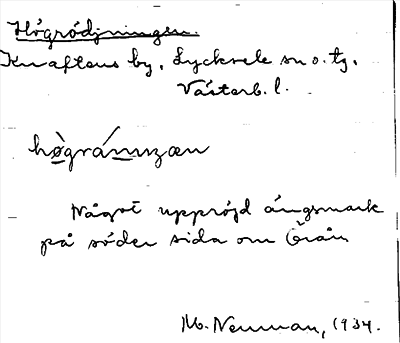 Högrödjningen
Knaftens by, Lycksele sn o. tg.
Västerb. l.
Något uppröjd ängsmark
på söder sida om Örån
M. Neuman, 1934.